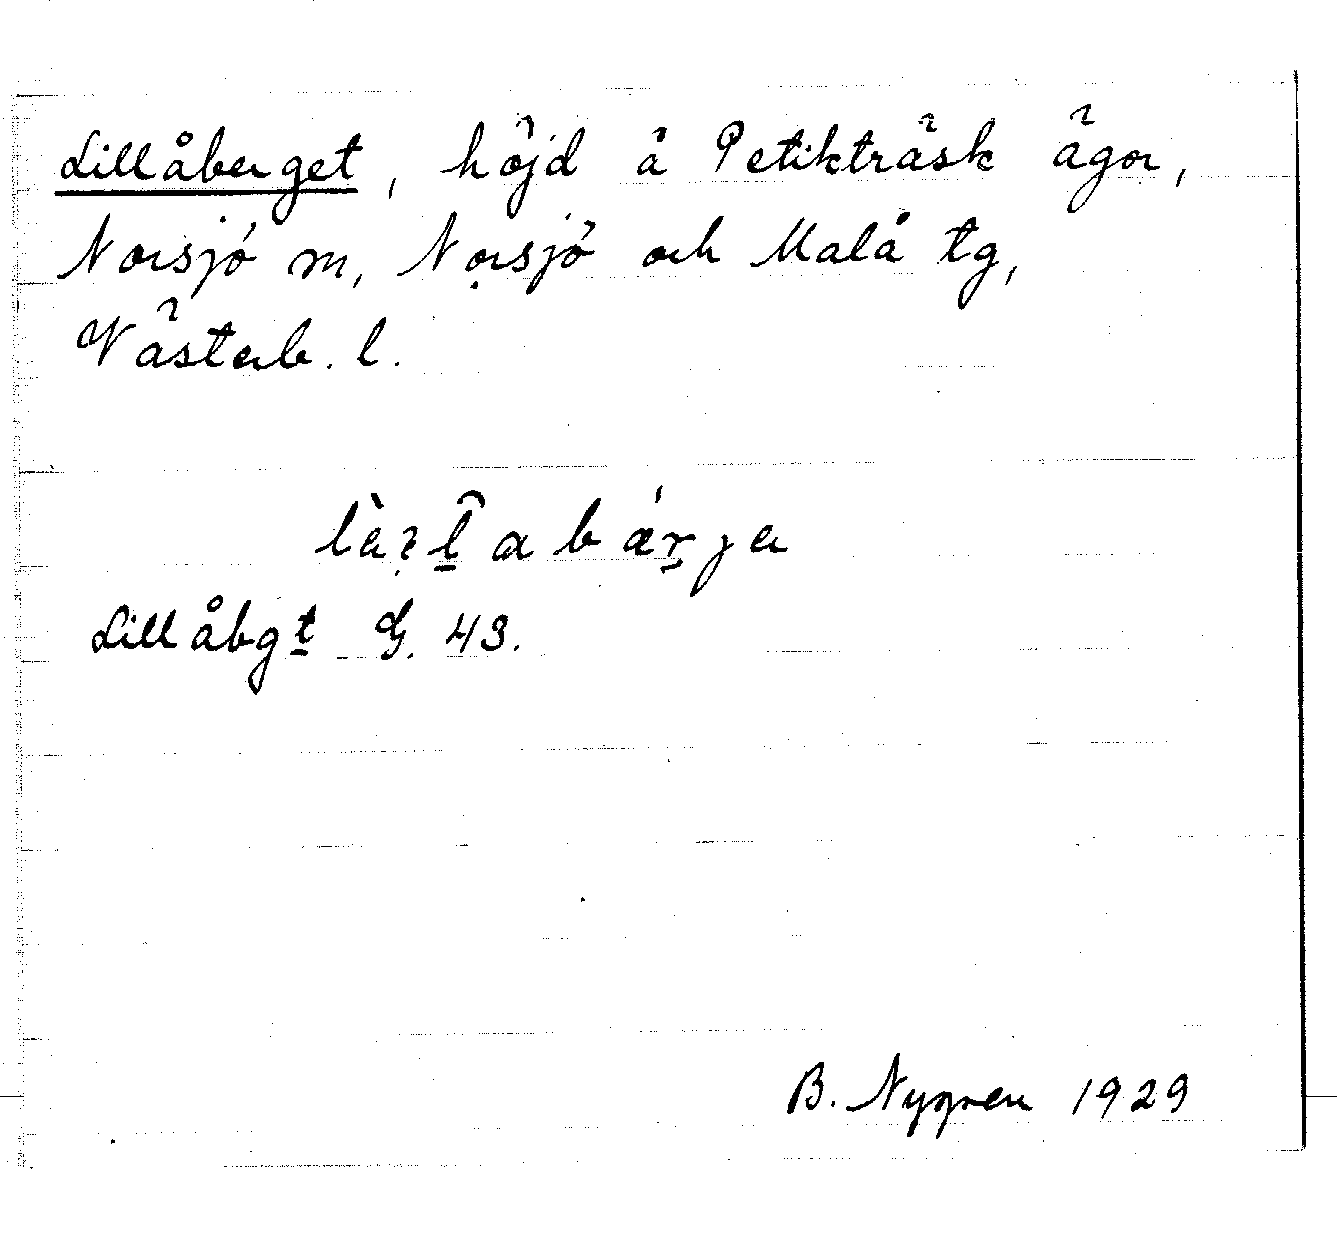 Lillåberget, höjd å Petikträsk ägor,
Norsjö m, Norsjö och Malå tg,
Västerb. l.
Lillåbgt G. 43.
B. Nygren 1929